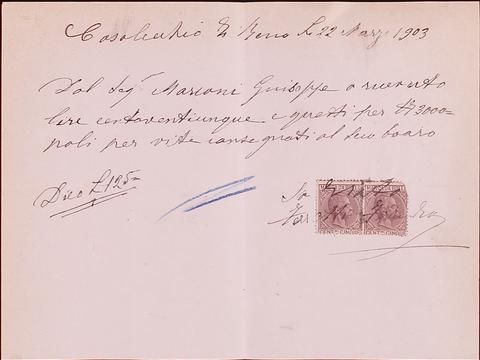 Casalecchio di Reno Lì 22 Marzo 1903
Dal Sigr Marconi Guiseppe o ricevuto
lire centoventiunque e questi per No 3000=
poli per vite consegnati al suo boaro
Dico £ 125=
In
CENT. CINQUE CENT. CINQUE